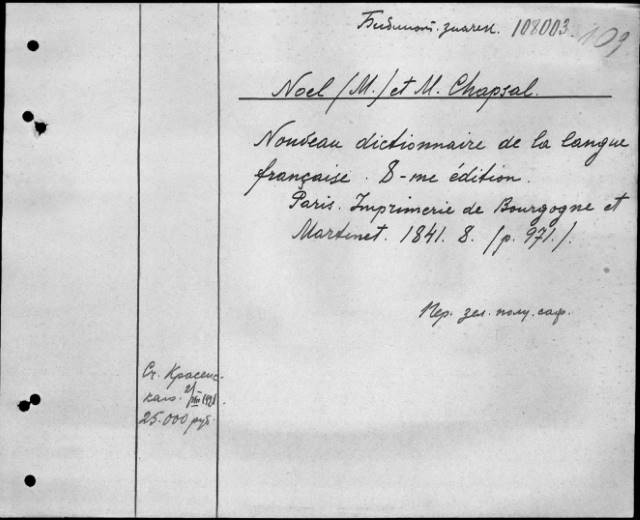 Библиот. знамен. 108003. 109
Noel (M.) et M. Chapsal.
Nouveau dictionnaire de la langue
française. 8-me édition.
Paris. Imprimerie de Bourgogne et
Martinet. 1841. 8. (p. 971.).
Пер. зел. полу. саф.
Ст. Красенс-
каго.
25.000 руб.